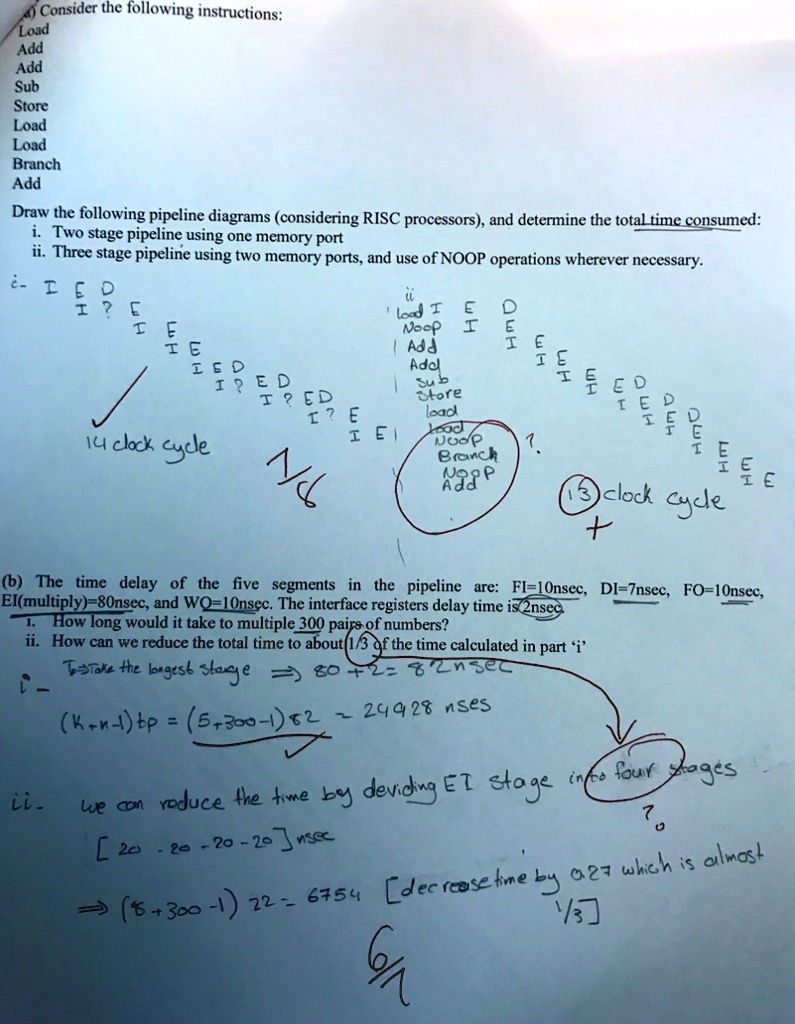 a) Consider the following instructions:
Load
Add
Add
Sub
Store
Load
Load
Branch
Add
Draw the following pipeline diagrams (considering RISC processors), and determine the total time consumed:
i. Two stage pipeline using one memory port
ii. Three stage pipeline using two memory ports, and use of NOOP operations wherever necessary.
i- I E D
I ? E
I E
I E
I E D
I ? E D
I ? E D
I ? E
I E
14 clock cycle
7/8
ii
load I E D
Noop I E
Add I E
Add I E
Sub I E
Store I E D
load I E D
load I E D
Noop I E
Branch I E
Noop I E
Add I E
?
13 clock cycle
+
(b) The time delay of the five segments in the pipeline are: FI=10nsec, DI=7nsec, FO=10nsec,
EI(multiply)=80nsec, and WO=10nsec. The interface registers delay time is 2nsec
i. How long would it take to multiple 300 pairs of numbers?
ii. How can we reduce the total time to about 1/3 of the time calculated in part ‘i’
i - Take the longest stage ⇒ 80 + 2 = 82nsec
(K+n-1)tp = (5+300-1)82 = 24928 nses
ii- we can reduce the time by deviding EI stage into four stages
?
[20 - 20 - 20 - 20] nsec
⇒ (8+300-1) 22 = 6754 [decrease time by 0.27 which is almost
1/3]
6/7